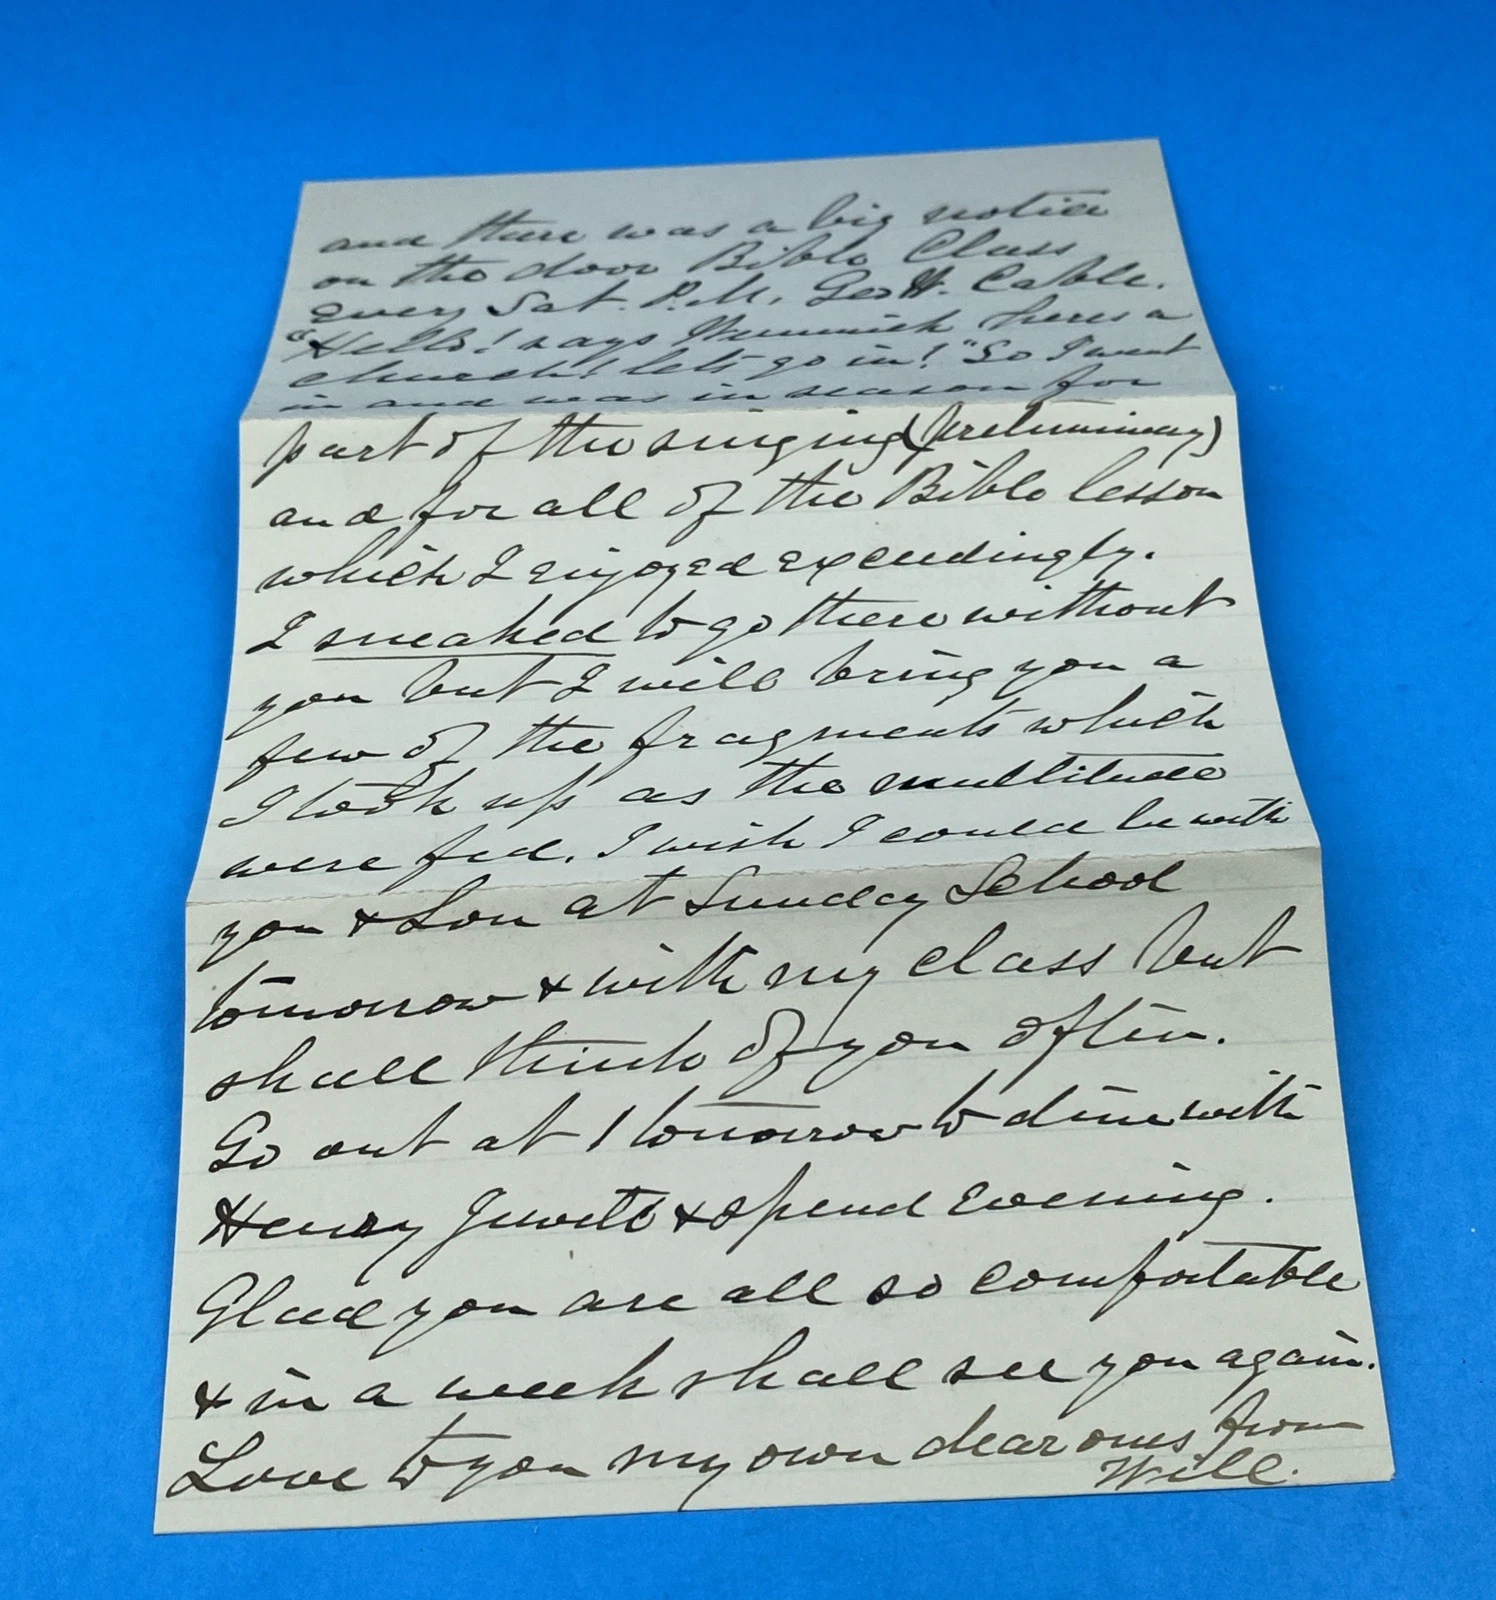 and there was a big notice
on the door Bible Class
every Sat. P.M. Geo W. Cable.
"Hello! says Wemmick heres a
church! lets go in!" So I went
in and was in season for
part of the singing (preliminary)
and for all of the Bible lesson
which I enjoyed exceedingly.
I sneaked to go there without
you but I will bring you a
few of the fragments which
I took up as the multitude
were fed. I wish I could be with
you & Lou at Sunday School
tomorrow & with my class but
shall think of you often.
Go out at 1 tomorrow to dine with
Henry Jewett & spend evening.
Glad you are all so comfortable
& in a week shall see you again.
Love to you my own dear ones from
Will.